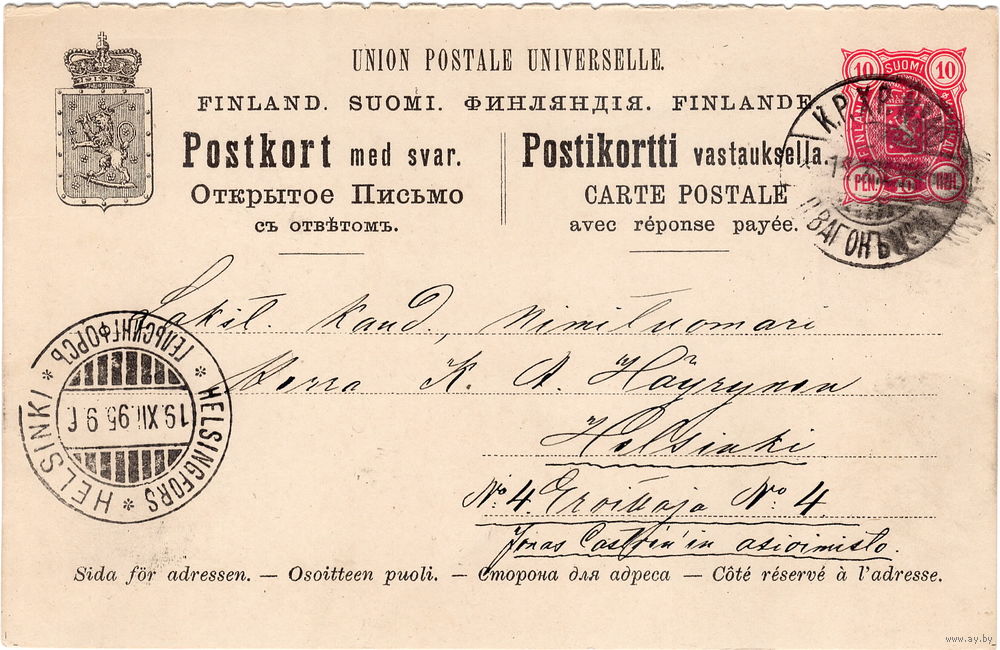 UNION POSTALE UNIVERSELLE.
FINLAND. SUOMI. ФИНЛЯНДІЯ. FINLANDE
Postkort med svar.
Открытое Письмо
съ отвѣтомъ.
Postikortti vastauksella.
CARTE POSTALE
avec réponse payée.
10 SUOMI 10
FINLAND
PEN
К.P.
ВАГОНЪ №
Lakit. kand., nimituomari
Herra K. A. Häyrynen
Helsinki
No 4. No 4
Jonas Castrén'in asioimisto.
ГЕЛЬСИНГФОРСЪ
HELSINKI * HELSINGFORS *
19.XII.95 9
Sida för adressen. — Osoitteen puoli. — Сторона для адреса — Côté réservé à l'adresse.
www.ay.by